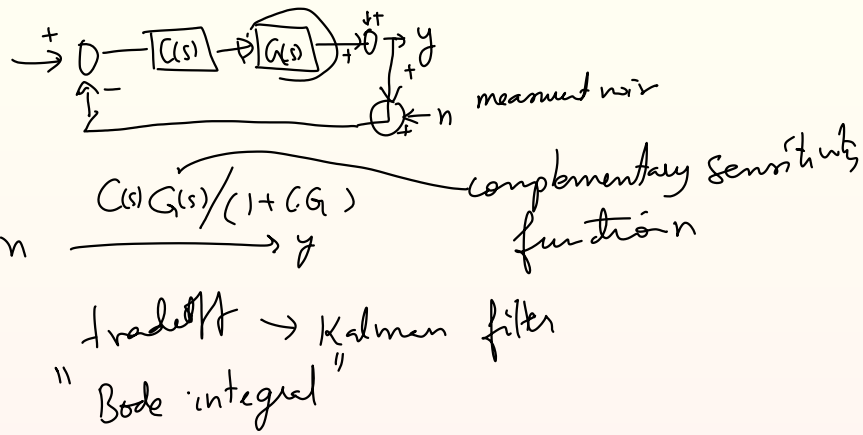 + C(s) G(s) + + y
- + n measurment noir
+
C(s) G(s)/(1+CG) complementary sensitivity
n y function
tradeoff → Kalman filter
"Bode integral"